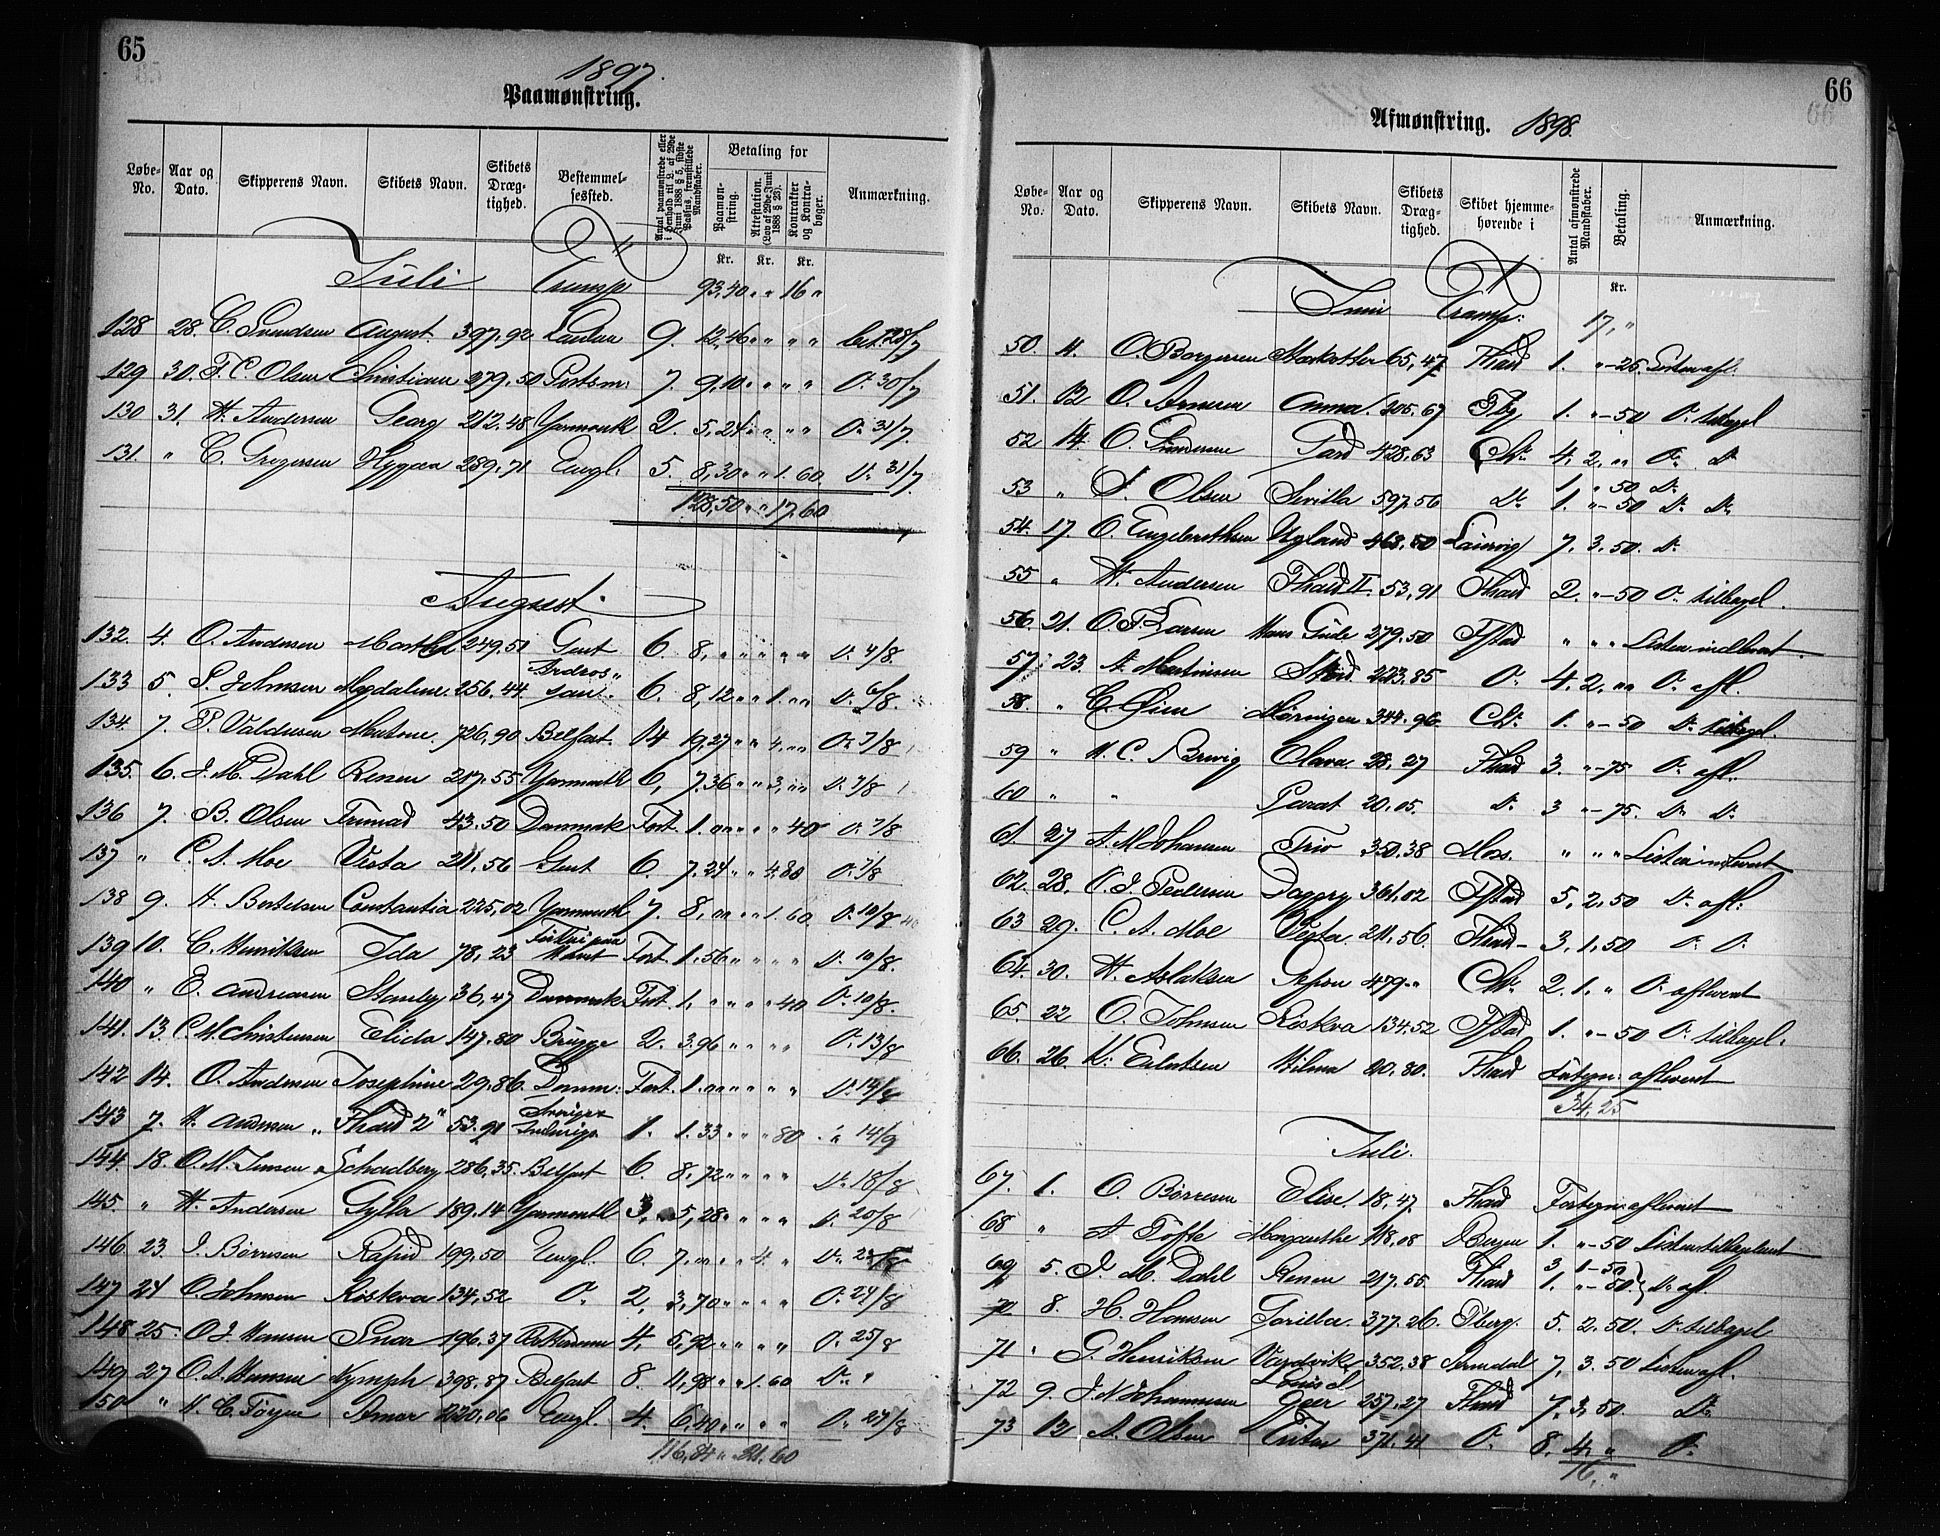 65
1897.
Paamønstring.
Løbe-No. Aar og Dato. Skipperens Navn. Skibets Navn. Skibets Dræg-tighed. Bestemmel-sessted. Antal paamønstrede eller i Henhold til L. af 29de Juni 1888 § 5, sidste Passus, fremstillede Mandskaber. Betaling for Paamøn-string. Attestation. (Lov af 29de Juni 1888 § 23). Kontrakter og Kontra-bøger. Anmærkning.
Kr. Kr. Kr.
Juli Transp 93,40 " " 16 "
128 28. C. Svendsen August. 397,92 London 9. 12,46 " " " " bet. 28/7
129 30. F. C. Olsen Christiane 279,50 Portsm: 7. 9,10 " " " " Do 30/7
130 31. H. Andersen Georg 212,48 Yarmouth 2. 5,24 " " " " Do 31/7
131. " C. Gregersen Hygæa 289,71 Engl. 5. 8,30 " " 1. 60 Do 31/7
128,50 " " 17,60
August
132. 4. O. Andersen Marthe 249,51 Gent 6. 8, " " " " " Do 4/8.
133 5. S. Johnsen Magdalene 256,44 6. 8,12 " " 1. " " Do 6/8.
134. 7. P. Valdersen 726,90 Belfast. 14 19,27 " " 4. " " Do 7/8
135. 6. J. M. Dahl Renen 217,55 Yarmouth 6, 7,36 " " 3, " " Do 7/8
136 7. B. Olsen 43,50 Danmark Fort. 1. " " " " 40 Do 7/8
137 " C. A. Moe Vesta 211,56 Gent 6. 7,24 " " 4,80 Do 7/8
138 9. H. Bertelsen Constantia 225,02 Yarmouth 7. 8, " " " 1. 60 Do 10/8
139 10. C. Henriksen Ida 78,23 Fort. 1. 56 " " " " Do 10/8.
140 " E. Andreasen Stanly 36,47 Danmark Fort. 1. " " " " 40 Do 10/8.
141. 13. C. M. Christensen Elida 147,80 Brügge 2. 3.96 " " " " Do 13/8
142 14. O. Andersen Josephine 29,86. Danm: Fort. 1. " " " " " " Do 14/8
143 7. H. Andersen Fhald 2" 53,91 1. 1. 33 " " " 80 " 14/9
144. 18. O. M. Jensen Schadberg 286,35. Belfast 6. 8,72 " " " " Do 18/8
145. " H. Andersen Gylla 189,14 Yarmouth 3, 5,28 " " " " Do 20/8
146. 23. J. Børresen Rapid 199,50 Engl. 6. 7, " " " 4. " Do 23/8
147 24 O. Johnsen Roskva 134,52 Do 2, 3,70 " " " " Do 24/8
148 25. O. J. Hansen Snar 196,37 4, 5,92 " " " " Do 25/8
149 27 O. A. Hansen Nymph 398,87 Belfast 8. 11,98 " " 1. 60 Do "
150 " N. C. Torgersen Amor 220,06 Engl. 4. 6,40 " " " " Do 27/8
116,84 " " 21. 60
66
Afmønstring. 1898.
Løbe-No. Aar og Dato. Skipperens Navn. Skibets Navn. Skibets Dræg-tighed. Skibet hjemme-hørende i Antal afmønstrede Mandskaber. Betaling. Anmærkning.
Kr.
Juni Transp: 17, "
50. 11. O. Borgersen 65,47 Fhald 1. " - 25. Listen afl.
51. 12 O. Arnesen Anna. 205,67 Tbg 1. " - 50 Do tilbagel
52 14. O. Gundersen Gard 428,63 Chr. 4. 2, " " Do Do
1 " 50 Do
53 " S. Olsen Sevilla 597,56 Do 1. " - 50 Do Do
54. 17. O. Engebrethsen Nyland 463,50 Laurvig 7. 3. 50. Do
55 " H. Andersen Fhald II. 53,91 Fhald 2. " - 50 Do tilbagel.
56. 21. O. F. Larsen Hans Gude 279,50 Fstad " " " Listen indleveret.
57. 23. A. Martinsen 223,85 Do 4. 2, " " Do afl.
58 " C. Øien Mørningen 344,96 Chr. 1. " - 50 Do tilbagel.
59 " N. C. Brevig Clara 28,27 Fhald 3. " - 75 Do afl.
60 " " Parat 20,05. Do 3 " - 75. Do Do
61. 27 A. M. Johansen Trio 350,38 Moss. " " " Listen indleveret
62. 28. O. J. Pedersen Dagny 361,02 Fstad 5, 2,50 Do afl:
63 29. C. A. Moe Vesta 211,56. Fhald - 3, 1,50 Do Do
64. 30. H. Aslaksen 479 " Chr. 2. 1. " Do afleveret
65. 22 O. Johnsen Roskva 134,52 Fstad 1. " - 50 Do tilbagel.
66. 26. K. Eilertsen Wilma 20,80. Fhald Fortegn: afleveret
34,25
Juli.
67. 1. O. Børresen Elise. 18,47 Fhald Fortegn: afleveret
68 " A. Tofte Margrethe 118,08 Bergen 1. " - 50 Listen tilbagelevert
3, 1-50
69 5. J. M. Dahl Renen 217,55 Fhald 1. " - 50. } Do afl.
70 8. H. Hansen Gorilla 377,26. Tberg. 5. 2. 50. Do tilbagel
71 " G. Henriksen Vardvik 352,38 Arendal 7, 3. 50 Listen afl.
72 9. J. N. Johannessen Louis de Geer 257,27 Fhald 7, 3, 50. Do
73 12 A. Olsen Triton 371,41 Do 8. 4, " Do
16, "